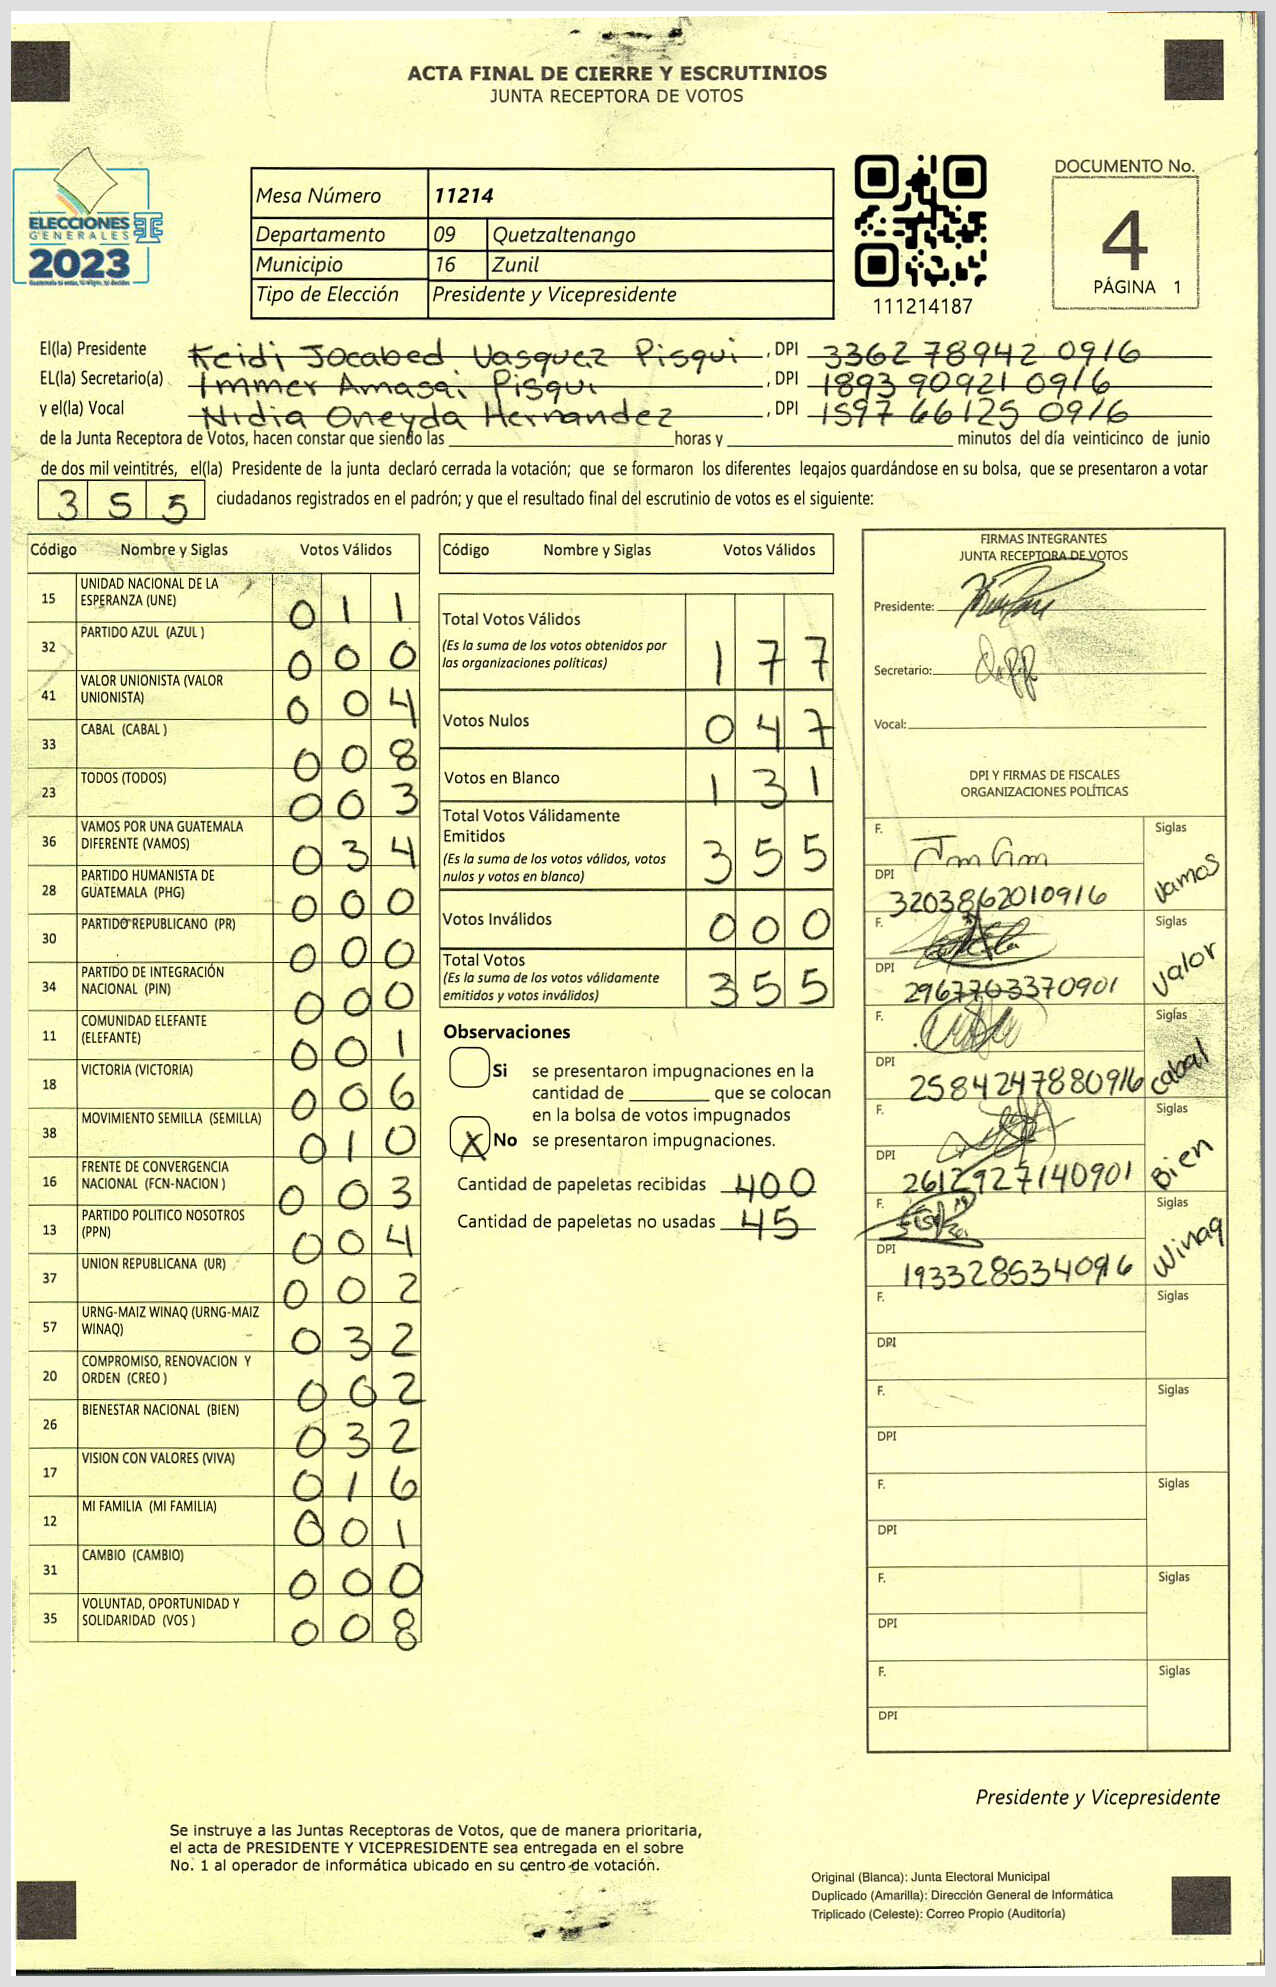 ACTA FINAL DE CIERRE Y ESCRUTINIOS
JUNTA RECEPTORA DE VOTOS
ELECCIONES
GENERALES
2023
Mesa Número 11214
Departamento 09 Quetzaltenango
Municipio 16 Zunil
Tipo de Elección Presidente y Vicepresidente
111214187
DOCUMENTO No.
4
PÁGINA 1
El(la) Presidente Keidi Jocabed Vasquez Pisqui , DPI 3362 78942 0916
EL(la) Secretario(a) Immer Amasai Pisqui , DPI 1893 90921 0916
y el(la) Vocal Nidia Oneyda Hernandez , DPI 1597 66125 0916
de la Junta Receptora de Votos, hacen constar que siendo las horas y minutos del día veinticinco de junio
de dos mil veintitrés, el(la) Presidente de la junta declaró cerrada la votación; que se formaron los diferentes legajos guardándose en su bolsa, que se presentaron a votar
3 5 5 ciudadanos registrados en el padrón; y que el resultado final del escrutinio de votos es el siguiente:
Código Nombre y Siglas Votos Válidos
15 UNIDAD NACIONAL DE LA
ESPERANZA (UNE) 0 1 1
32 PARTIDO AZUL (AZUL ) 0 0 0
41 VALOR UNIONISTA (VALOR
UNIONISTA) 0 0 4
33 CABAL (CABAL ) 0 0 8
23 TODOS (TODOS) 0 0 3
36 VAMOS POR UNA GUATEMALA
DIFERENTE (VAMOS) 0 3 4
28 PARTIDO HUMANISTA DE
GUATEMALA (PHG) 0 0 0
30 PARTIDO REPUBLICANO (PR) 0 0 0
34 PARTIDO DE INTEGRACIÓN
NACIONAL (PIN) 0 0 0
11 COMUNIDAD ELEFANTE
(ELEFANTE) 0 0 1
18 VICTORIA (VICTORIA) 0 0 6
38 MOVIMIENTO SEMILLA (SEMILLA) 0 1 0
16 FRENTE DE CONVERGENCIA
NACIONAL (FCN-NACION ) 0 0 3
13 PARTIDO POLITICO NOSOTROS
(PPN) 0 0 4
37 UNION REPUBLICANA (UR) 0 0 2
57 URNG-MAIZ WINAQ (URNG-MAIZ
WINAQ) 0 3 2
20 COMPROMISO, RENOVACION Y
ORDEN (CREO ) 0 0 2
26 BIENESTAR NACIONAL (BIEN) 0 3 2
17 VISION CON VALORES (VIVA) 0 1 6
12 MI FAMILIA (MI FAMILIA) 0 0 1
31 CAMBIO (CAMBIO) 0 0 0
35 VOLUNTAD, OPORTUNIDAD Y
SOLIDARIDAD (VOS ) 0 0 8
Código Nombre y Siglas Votos Válidos
Total Votos Válidos
(Es la suma de los votos obtenidos por
las organizaciones políticas) 1 7 7
Votos Nulos 0 4 7
Votos en Blanco 1 3 1
Total Votos Válidamente
Emitidos
(Es la suma de los votos válidos, votos
nulos y votos en blanco) 3 5 5
Votos Inválidos 0 0 0
Total Votos
(Es la suma de los votos válidamente
emitidos y votos inválidos) 3 5 5
Observaciones
Si se presentaron impugnaciones en la
cantidad de que se colocan
en la bolsa de votos impugnados
X No se presentaron impugnaciones.
Cantidad de papeletas recibidas 400
Cantidad de papeletas no usadas 45
FIRMAS INTEGRANTES
JUNTA RECEPTORA DE VOTOS
Presidente:
Secretario:
Vocal:
DPI Y FIRMAS DE FISCALES
ORGANIZACIONES POLÍTICAS
F. Siglas
DPI Vamos
3203862010916
F. Siglas
DPI Valor
2967703370901
F. Siglas
DPI Cabal
2584247880916
F. Siglas
DPI Bien
2612927140901
F. Siglas
DPI Winaq
F. Siglas
DPI
F. Siglas
DPI
F. Siglas
DPI
F. Siglas
DPI
F. Siglas
DPI
Presidente y Vicepresidente
Se instruye a las Juntas Receptoras de Votos, que de manera prioritaria,
el acta de PRESIDENTE Y VICEPRESIDENTE sea entregada en el sobre
No. 1 al operador de informática ubicado en su centro de votación.
Original (Blanca): Junta Electoral Municipal
Duplicado (Amarilla): Dirección General de Informática
Triplicado (Celeste): Correo Propio (Auditoría)